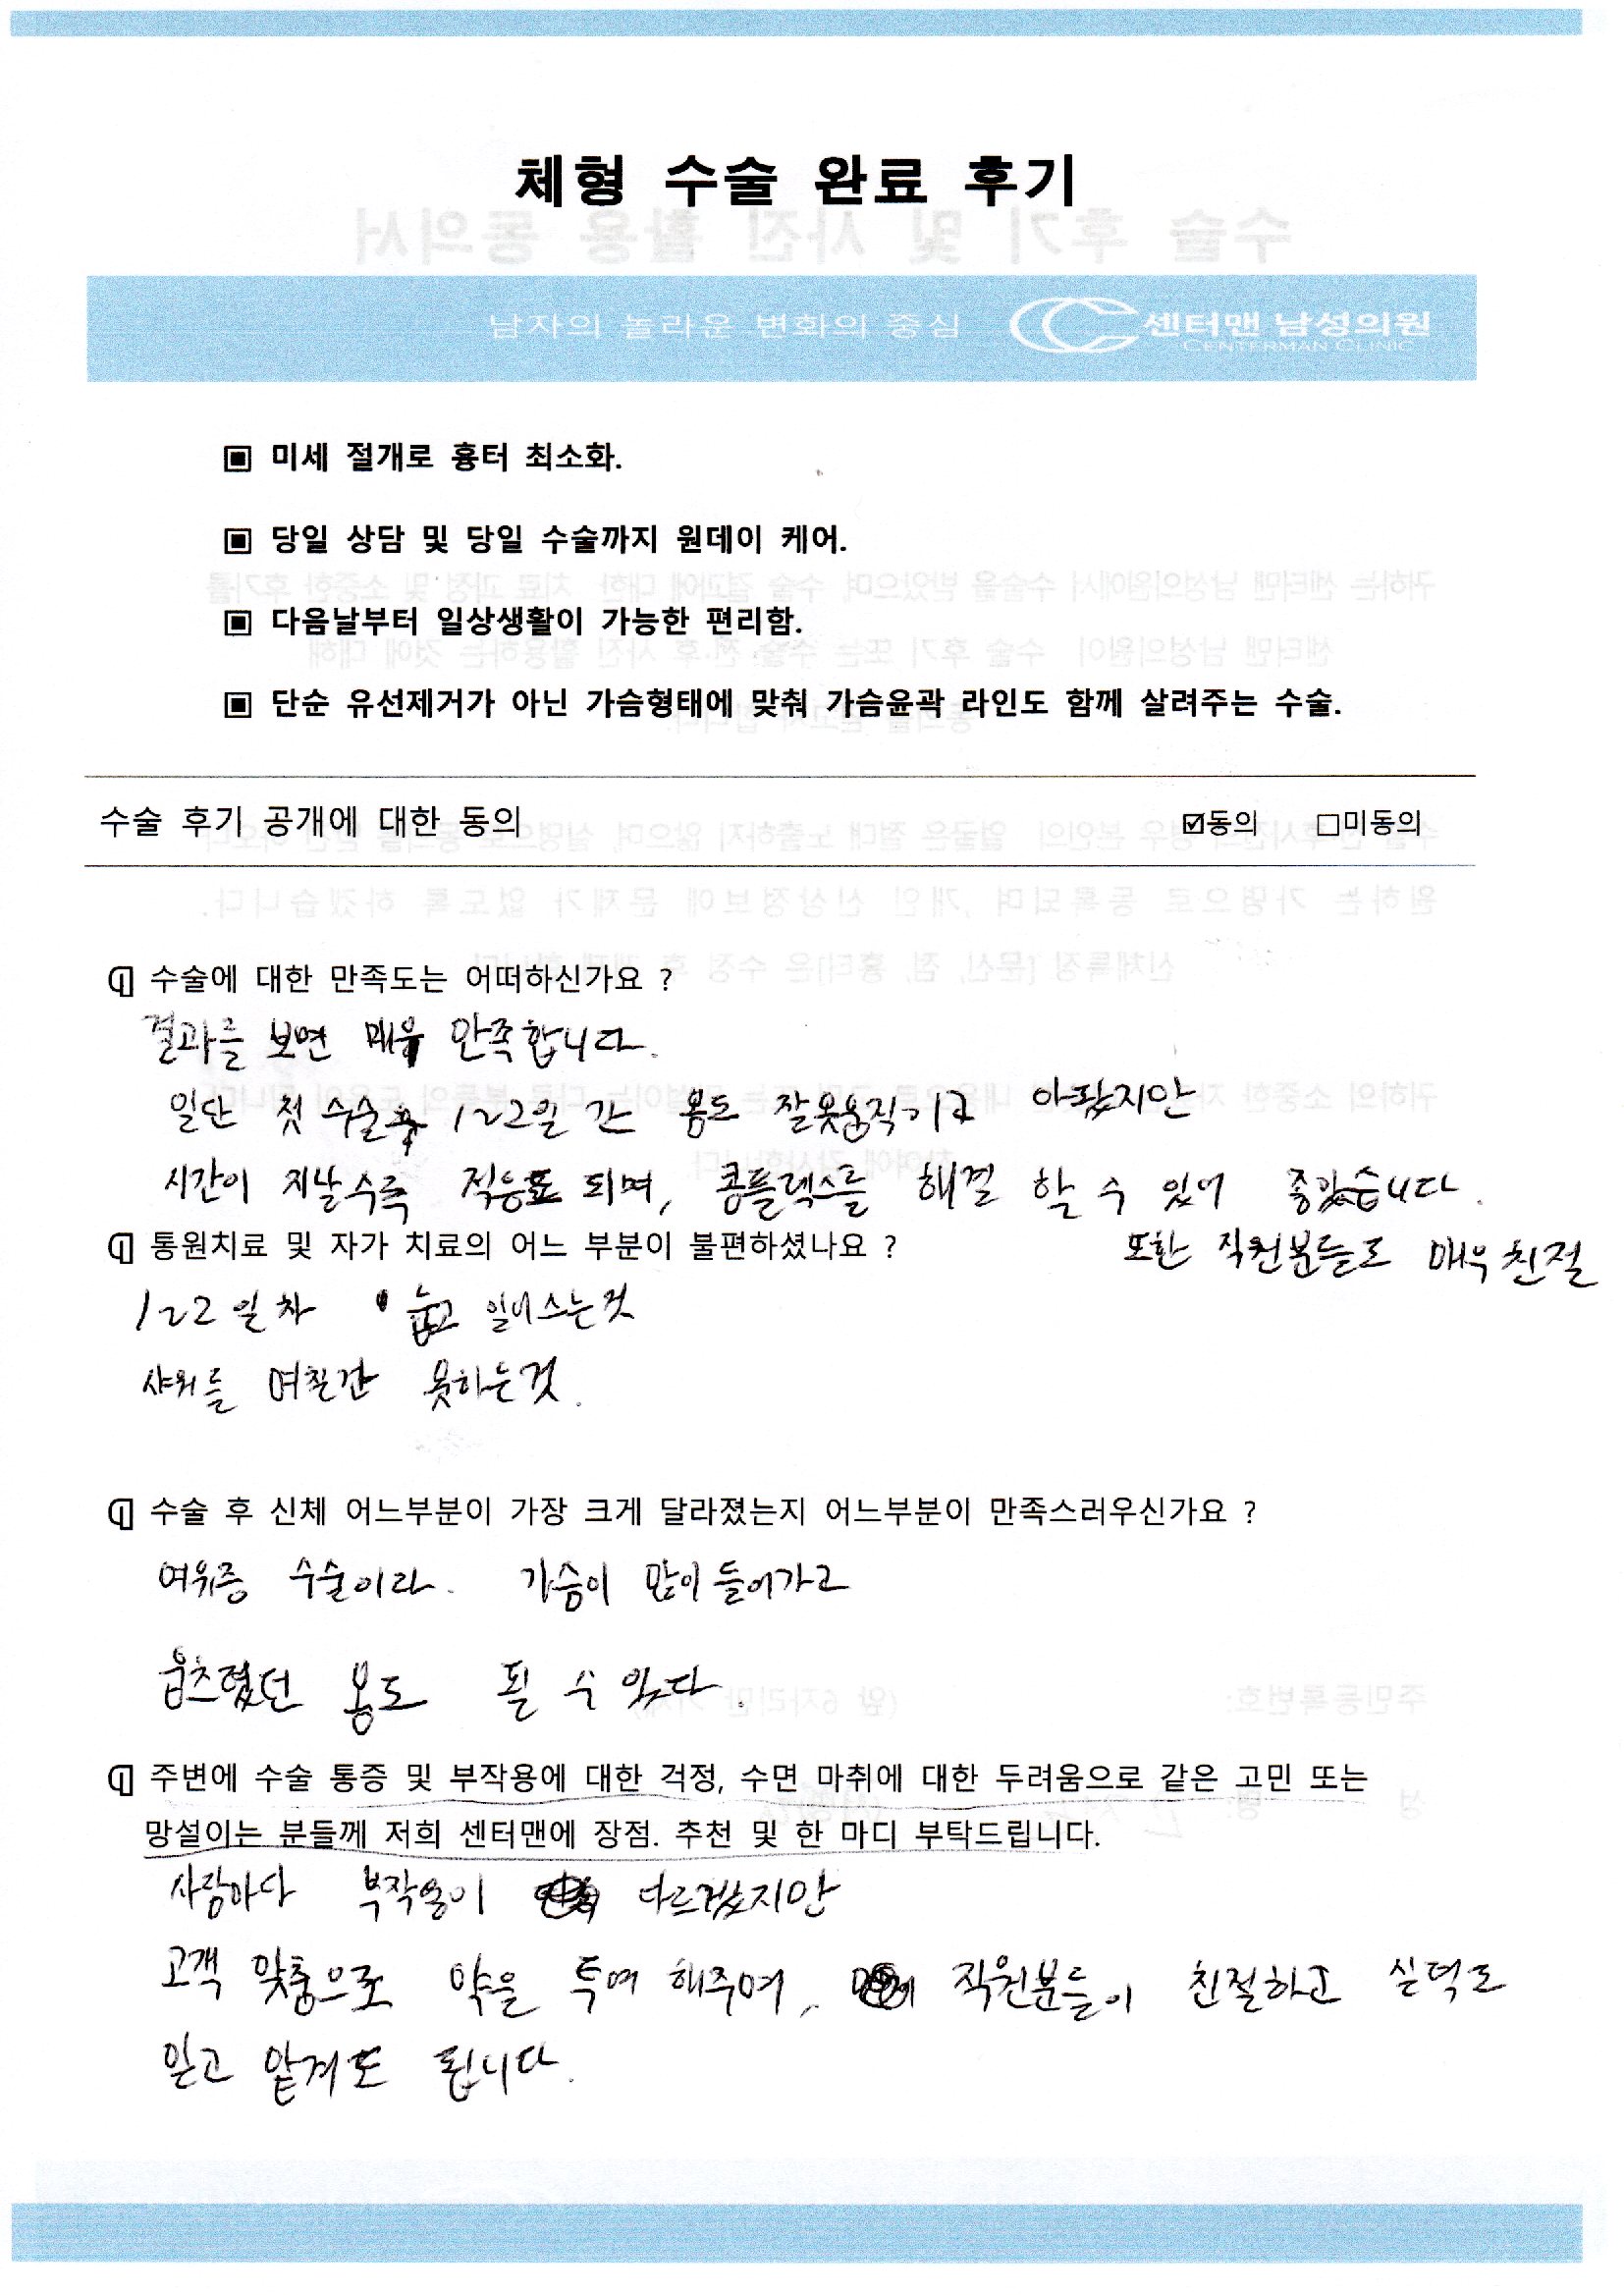 체형 수술 완료 후기
남자의 놀라운 변화의 중심 CC 센터맨 남성의원
CENTERMAN CLINIC
▣ 미세 절개로 흉터 최소화.
▣ 당일 상담 및 당일 수술까지 원데이 케어.
▣ 다음날부터 일상생활이 가능한 편리함.
▣ 단순 유선제거가 아닌 가슴형태에 맞춰 가슴윤곽 라인도 함께 살려주는 수술.
수술 후기 공개에 대한 동의 ☑동의 □미동의
수술에 대한 만족도는 어떠하신가요 ?
결과를 보면 매우 만족합니다.
일단 첫 수술후 1~2일 간 몸도 잘못움직이고 아팠지만
시간이 지날수록 적응도 되며, 콤플렉스를 해결 할 수 있어 좋았습니다.
통원치료 및 자가 치료의 어느 부분이 불편하셨나요 ?
또한 직원분들도 매우 친절
1~2일차 눕고 일어스는것
샤워를 며칠간 못하는것.
수술 후 신체 어느부분이 가장 크게 달라졌는지 어느부분이 만족스러우신가요 ?
여유증 수술이라. 가슴이 많이 들어가고
움츠렸던 몸도 필 수 있다.
주변에 수술 통증 및 부작용에 대한 걱정, 수면 마취에 대한 두려움으로 같은 고민 또는
망설이는 분들께 저희 센터맨에 장점. 추천 및 한 마디 부탁드립니다.
사람마다 부작용이 다르겠지만
고객 맞춤으로 약을 투여 해주며, 직원분들이 친절하고 실력도
믿고 맡겨도 됩니다.